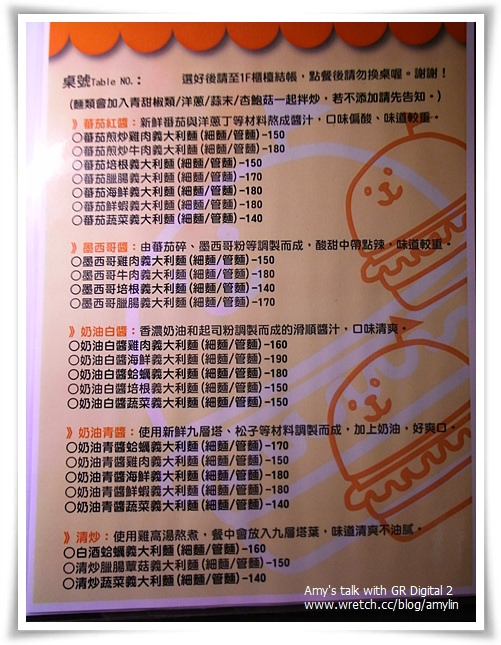 桌號Table NO.: 選好後請至1F櫃檯結帳，點餐後請勿換桌喔。謝謝！
(麵類會加入青甜椒類/洋蔥/蒜末/杏鮑菇一起拌炒，若不添加請先告知。)
》蕃茄紅醬：新鮮番茄與洋蔥丁等材料熬成醬汁，口味偏酸、味道較重。
○蕃茄煎炒雞肉義大利麵(細麵/管麵)-150
○蕃茄煎炒牛肉義大利麵(細麵/管麵)-180
○蕃茄培根義大利麵(細麵/管麵)-150
○蕃茄臘腸義大利麵(細麵/管麵)-170
○蕃茄海鮮義大利麵(細麵/管麵)-180
○蕃茄鮮蝦義大利麵(細麵/管麵)-180
○蕃茄蔬菜義大利麵(細麵/管麵)-140
》墨西哥醬：由蕃茄碎、墨西哥粉等調製而成，酸甜中帶點辣，味道較重。
○墨西哥雞肉義大利麵(細麵/管麵)-150
○墨西哥牛肉義大利麵(細麵/管麵)-180
○墨西哥培根義大利麵(細麵/管麵)-140
○墨西哥臘腸義大利麵(細麵/管麵)-170
》奶油白醬：香濃奶油和起司粉調製而成的滑順醬汁，口味清爽。
○奶油白醬雞肉義大利麵(細麵/管麵)-160
○奶油白醬海鮮義大利麵(細麵/管麵)-190
○奶油白醬蛤蠣義大利麵(細麵/管麵)-180
○奶油白醬培根義大利麵(細麵/管麵)-150
○奶油白醬蔬菜義大利麵(細麵/管麵)-150
》奶油青醬：使用新鮮九層塔、松子等材料調製而成，加上奶油，好爽口。
○奶油青醬蛤蠣義大利麵(細麵/管麵)-170
○奶油青醬雞肉義大利麵(細麵/管麵)-150
○奶油青醬海鮮義大利麵(細麵/管麵)-180
○奶油青醬鮮蝦義大利麵(細麵/管麵)-180
○奶油青醬蔬菜義大利麵(細麵/管麵)-140
》清炒：使用雞高湯熬煮，餐中會放入九層塔葉，味道清爽不油膩。
○白酒蛤蠣義大利麵(細麵/管麵)-160
○清炒臘腸蕈菇義大利麵(細麵/管麵)-150
○清炒蔬菜義大利麵(細麵/管麵)-140
Amy's talk with GR Digital 2
www.wretch.cc/blog/amylin